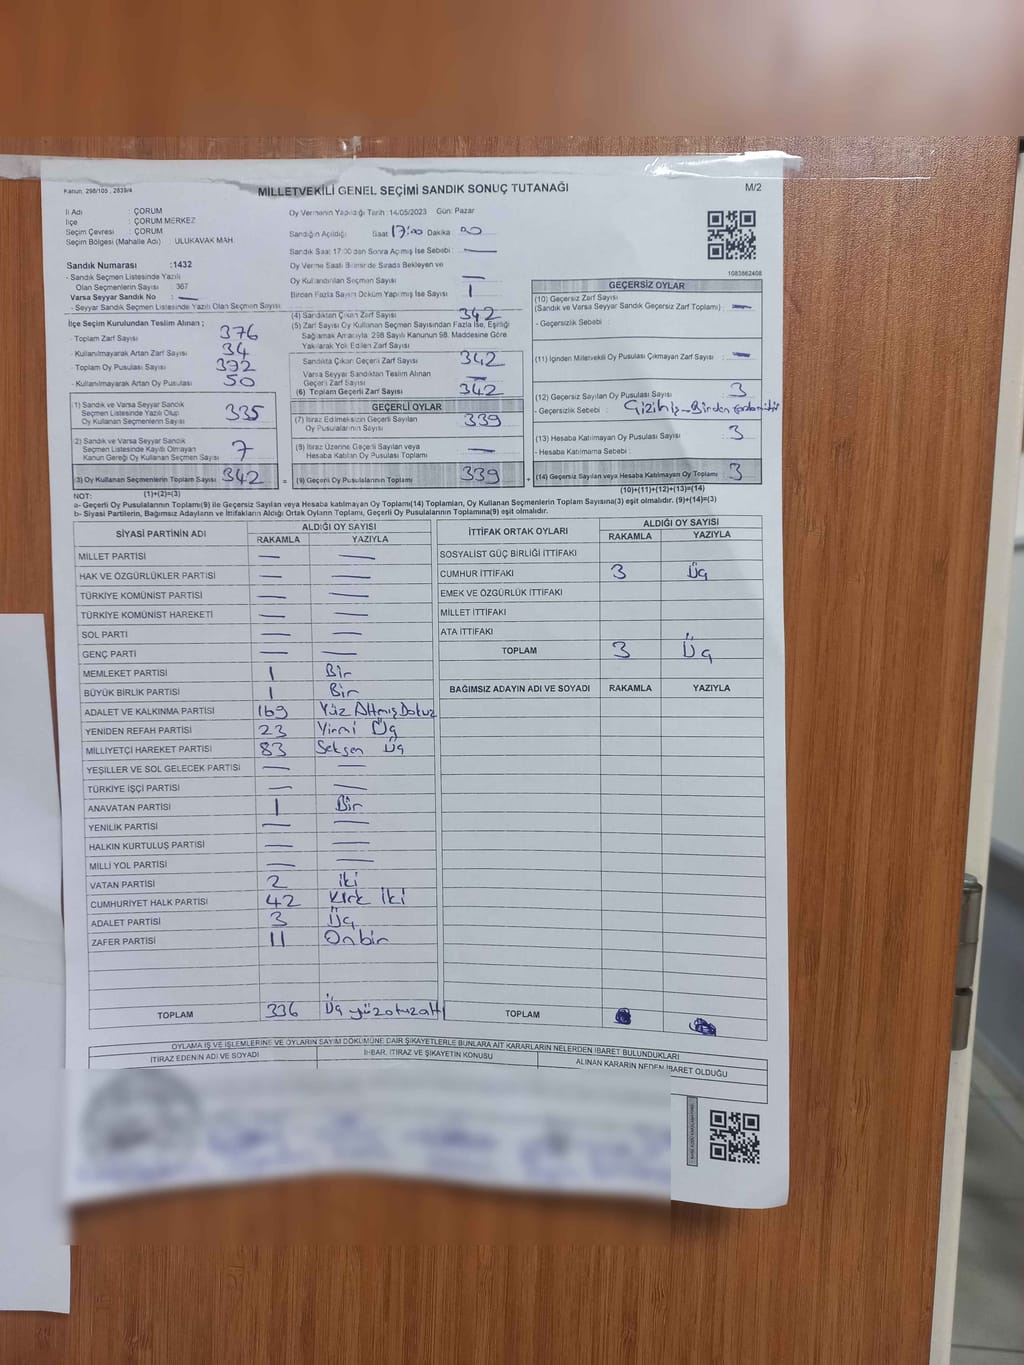 Kanun: 298/105 , 2839/4
MİLLETVEKİLİ GENEL SEÇİMİ SANDIK SONUÇ TUTANAĞI
M/2
İl Adı : ÇORUM
İlçe : ÇORUM MERKEZ
Seçim Çevresi : ÇORUM
Seçim Bölgesi (Mahalle Adı) : ULUKAVAK MAH.
Sandık Numarası :1432
- Sandık Seçmen Listesinde Yazılı
Olan Seçmenlerin Sayısı : 367
Varsa Seyyar Sandık No : —
- Seyyar Sandık Seçmen Listesinde Yazılı Olan Seçmen Sayısı
Oy Vermenin Yapıldığı Tarih :14/05/2023 Gün: Pazar
Sandığın Açıldığı Saat: 17:00 Dakika
Sandık Saat 17:00'dan Sonra Açılmış İse Sebebi : —
Oy Verme Saati Bitiminde Sırada Bekleyen ve
Oy Kullandırılan Seçmen Sayısı —
Birden Fazla Sayım Döküm Yapılmış İse Sayısı 1
1083862408
İlçe Seçim Kurulundan Teslim Alınan ;
- Toplam Zarf Sayısı : 376
- Kullanılmayarak Artan Zarf Sayısı : 34
- Toplam Oy Pusulası Sayısı : 392
- Kullanılmayarak Artan Oy Pusulası : 50
(1) Sandık ve Varsa Seyyar Sandık
Seçmen Listesinde Yazılı Olup
Oy Kullanan Seçmenlerin Sayısı 335
(2) Sandık ve Varsa Seyyar Sandık
Seçmen Listesinde Kayıtlı Olmayan
Kanun Gereği Oy Kullanan Seçmen Sayısı 7
(3) Oy Kullanan Seçmenlerin Toplam Sayısı 342
(1)+(2)=(3)
(4) Sandıktan Çıkan Zarf Sayısı 342
(5) Zarf Sayısı Oy Kullanan Seçmen Sayısından Fazla İse, Eşitliği
Sağlamak Amacıyla; 298 Sayılı Kanunun 98. Maddesine Göre
Yakılarak Yok Edilen Zarf Sayısı
Sandıkta Çıkan Geçerli Zarf Sayısı 342
Varsa Seyyar Sandıktan Teslim Alınan
Geçerli Zarf Sayısı —
(6) Toplam Geçerli Zarf Sayısı 342
GEÇERLİ OYLAR
(7) İtiraz Edilmeksizin Geçerli Sayılan
Oy Pusulalarının Sayısı 339
(8) İtiraz Üzerine Geçerli Sayılan veya
Hesaba Katılan Oy Pusulası Toplamı —
= (9) Geçerli Oy Pusulalarının Toplamı 339
GEÇERSİZ OYLAR
(10) Geçersiz Zarf Sayısı
(Sandık ve Varsa Seyyar Sandık Geçersiz Zarf Toplamı) : —
- Geçersizlik Sebebi :
(11) İçinden Milletvekili Oy Pusulası Çıkmayan Zarf Sayısı : —
(12) Geçersiz Sayılan Oy Pusulası Sayısı : 3
- Geçersizlik Sebebi : Birden
(13) Hesaba Katılmayan Oy Pusulası Sayısı : 3
- Hesaba Katılmama Sebebi :
+ (14) Geçersiz Sayılan veya Hesaba Katılmayan Oy Toplamı 3
(10)+(11)+(12)+(13)=(14)
NOT:
a- Geçerli Oy Pusulalarının Toplamı(9) ile Geçersiz Sayılan veya Hesaba katılmayan Oy Toplamı(14) Toplamları, Oy Kullanan Seçmenlerin Toplam Sayısına(3) eşit olmalıdır. (9)+(14)=(3)
b- Siyasi Partilerin, Bağımsız Adayların ve İttifakların Aldığı Ortak Oyların Toplamı, Geçerli Oy Pusulalarının Toplamına(9) eşit olmalıdır.
SİYASİ PARTİNİN ADI ALDIĞI OY SAYISI
RAKAMLA YAZIYLA
MİLLET PARTİSİ — —
HAK VE ÖZGÜRLÜKLER PARTİSİ — —
TÜRKİYE KOMÜNİST PARTİSİ — —
TÜRKİYE KOMÜNİST HAREKETİ — —
SOL PARTİ — —
GENÇ PARTİ — —
MEMLEKET PARTİSİ 1 Bir
BÜYÜK BİRLİK PARTİSİ 1 Bir
ADALET VE KALKINMA PARTİSİ 169 Yüz Altmış Dokuz
YENİDEN REFAH PARTİSİ 23 Yirmi Üç
MİLLİYETÇİ HAREKET PARTİSİ 83 Seksen Üç
YEŞİLLER VE SOL GELECEK PARTİSİ — —
TÜRKİYE İŞÇİ PARTİSİ — —
ANAVATAN PARTİSİ 1 Bir
YENİLİK PARTİSİ — —
HALKIN KURTULUŞ PARTİSİ — —
MİLLİ YOL PARTİSİ — —
VATAN PARTİSİ 2 iki
CUMHURİYET HALK PARTİSİ 42 Kırk iki
ADALET PARTİSİ 3 Üç
ZAFER PARTİSİ 11 Onbir
TOPLAM 336 Üç yüzotuzaltı
İTTİFAK ORTAK OYLARI ALDIĞI OY SAYISI
RAKAMLA YAZIYLA
SOSYALİST GÜÇ BİRLİĞİ İTTİFAKI
CUMHUR İTTİFAKI 3 Üç
EMEK VE ÖZGÜRLÜK İTTİFAKI
MİLLET İTTİFAKI
ATA İTTİFAKI
TOPLAM 3 Üç
BAĞIMSIZ ADAYIN ADI VE SOYADI RAKAMLA YAZIYLA
TOPLAM
OYLAMA İŞ VE İŞLEMLERİNE VE OYLARIN SAYIM DÖKÜMÜNE DAİR ŞİKAYETLERLE BUNLARA AİT KARARLARIN NELERDEN İBARET BULUNDUKLARI
İTİRAZ EDENİN ADI VE SOYADI İHBAR, İTİRAZ VE ŞİKAYETİN KONUSU ALINAN KARARIN NEDEN İBARET OLDUĞU